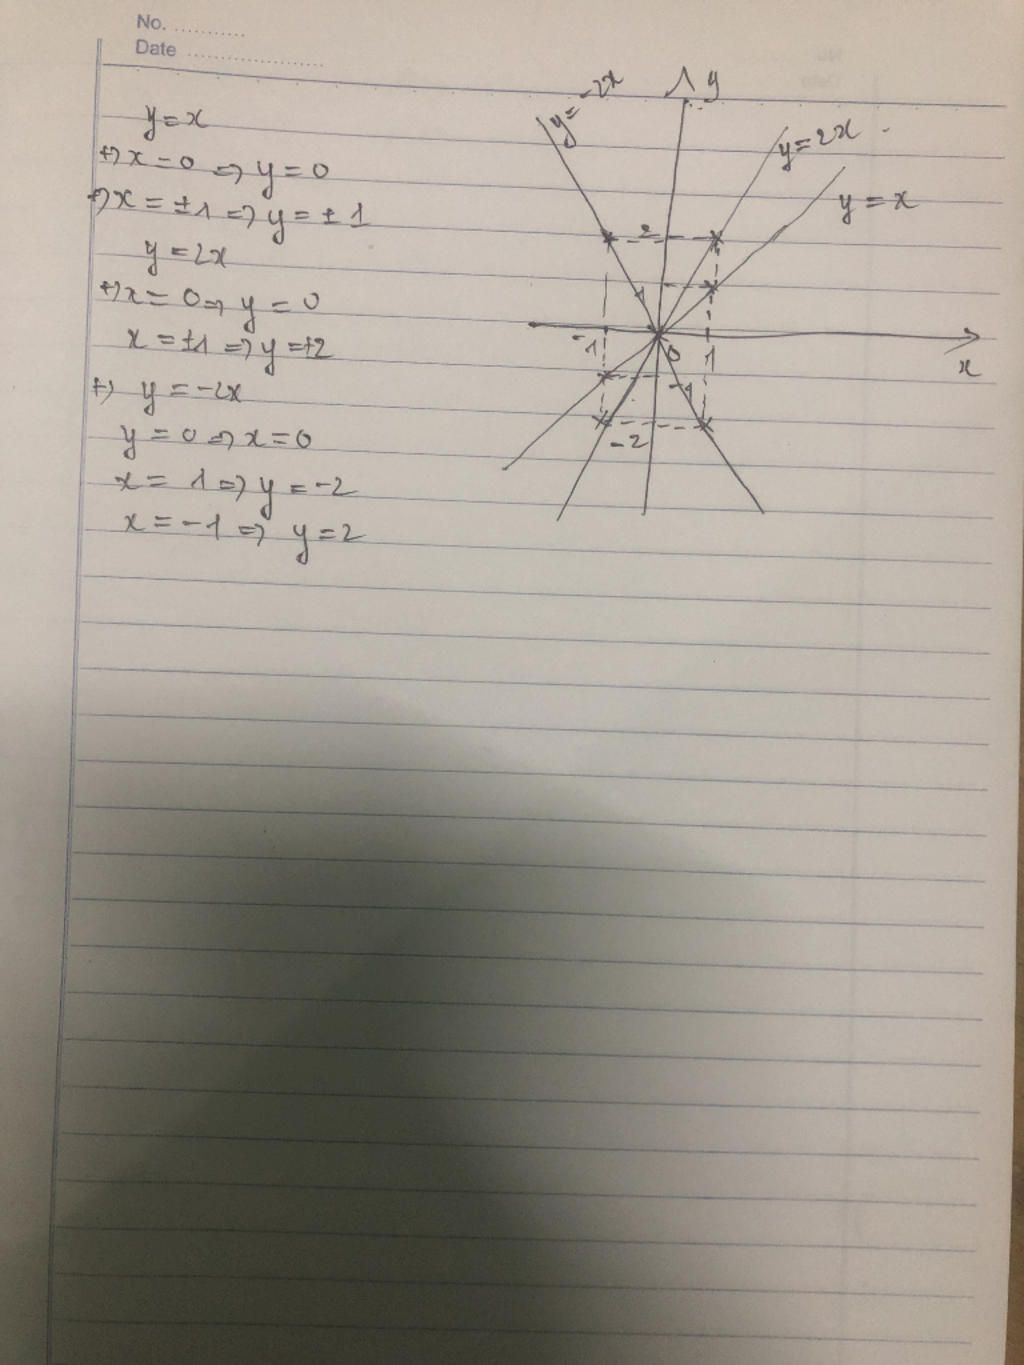 No. ...........
Date ......................
y = x
+) x = 0 => y = 0
+) x = ±1 => y = ±1
y = 2x
+) x = 0 => y = 0
x = ±1 => y = ±2
+) y = -2x
y = 0 => x = 0
x = 1 => y = -2
x = -1 => y = 2
y = -2x
y
y = 2x
y = x
2
1
-1
0
1
x
-1
-2